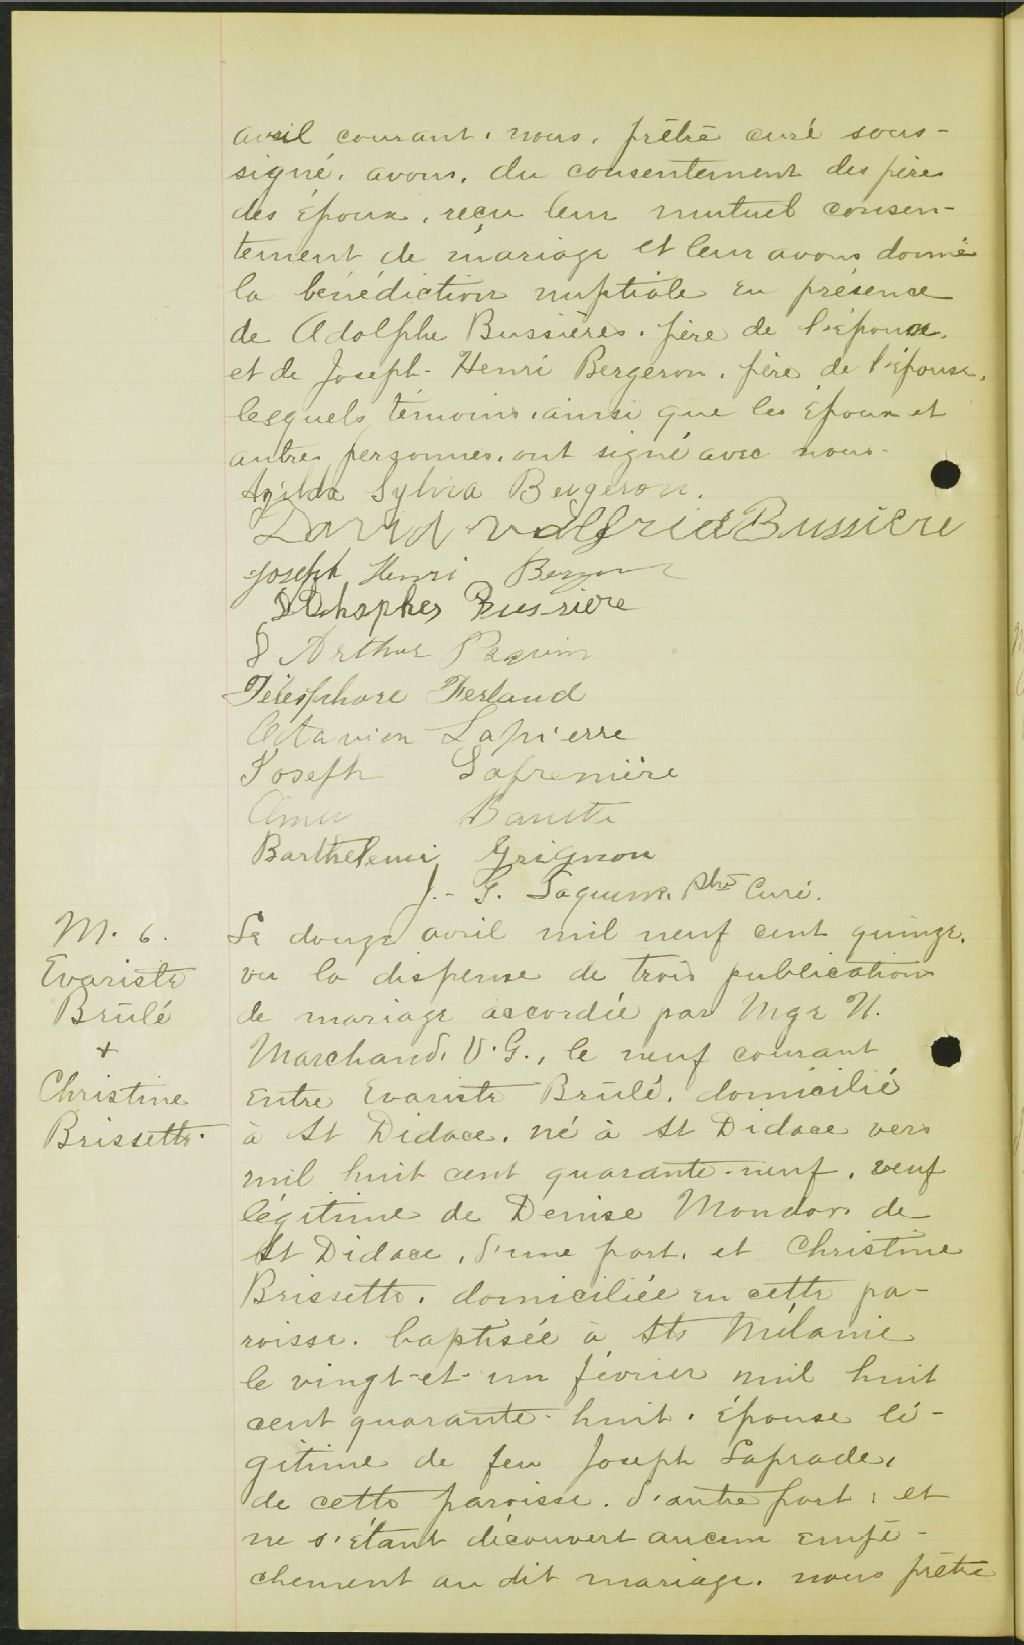 avril courant, nous, prêtre curé sous-
signé, avons, du consentement des pères
des époux, reçu leur mutuel consen-
tement de mariage et leur avons donné
la bénédiction nuptiale en présence
de Adolphe Bussières, père de l'époux,
et de Joseph-Henri Bergeron, père de l'épouse,
lesquels témoins, ainsi que les époux et
autres personnes, ont signé avec nous.
Sylvia Bergeron.
David Valfrid Bussière
Joseph Henri Bergeron
Bussière
Arthur Paquin
Télesphore Ferland
Octavien Lapierre
Joseph Lafrenière
Barthélemi Grignon
J.-G. Laquerre Ptre Curé.
M. 6.
Evariste
Brûlé
+
Christine
Brissette.
Le douze avril mil neuf cent quinze,
vu la dispense de trois publications
de mariage accordée par Mgr N.
Marchand, V.G., le neuf courant
entre Evariste Brûlé, domicilié
à St Didace, né à St Didace vers
mil huit cent quarante-neuf, veuf
légitime de Denise Mondor, de
St Didace, d'une part, et Christine
Brissette, domiciliée en cette pa-
roisse, baptisée à Ste Mélanie
le vingt-et-un février mil huit
cent quarante-huit, épouse lé-
gitime de feu Joseph Laprade,
de cette paroisse, d'autre part; et
ne s'étant découvert aucun empê-
chement au dit mariage, nous prêtre